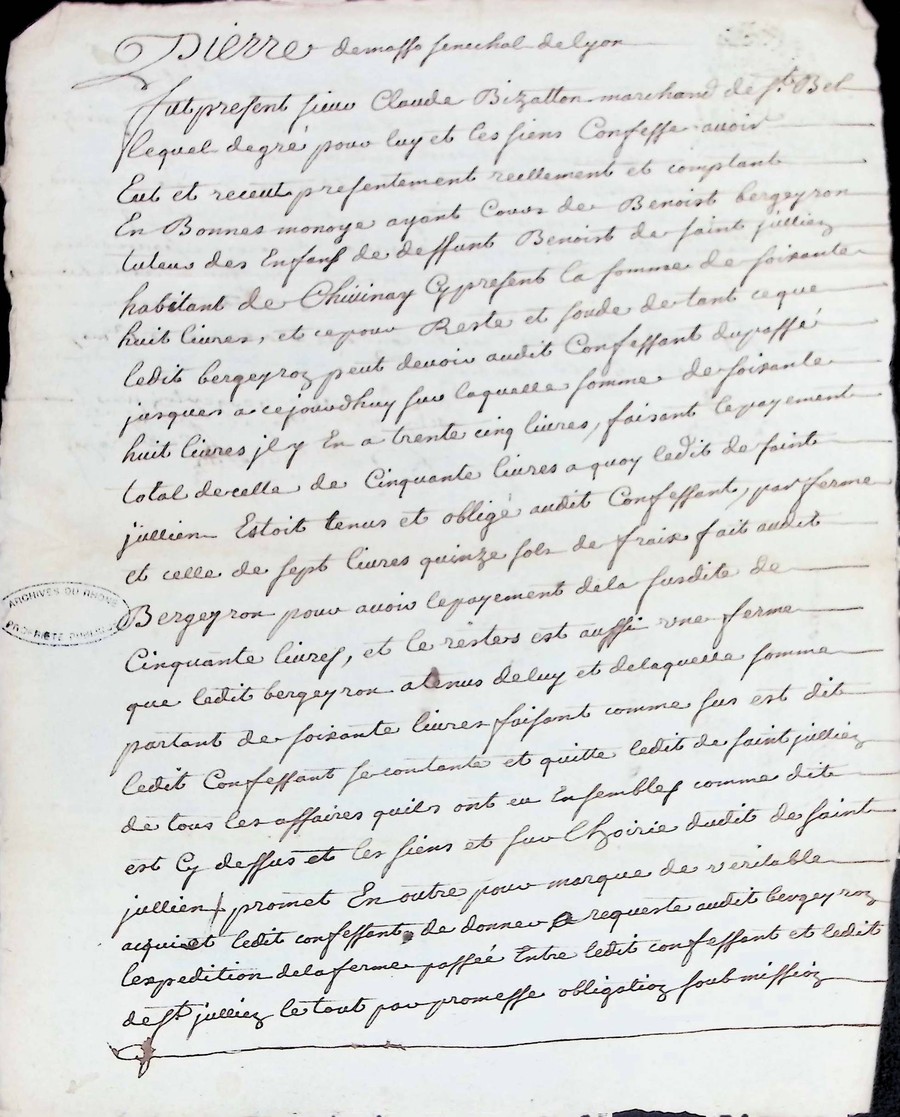 Pierre demasso senechal de lyon
fut present sieur Claude Bizatton marchand de st Bel
lequel de gré pour luy et les siens Confesse avoir
Eut et receut presentement reellement et comptant
En Bonnes monoye ayant Cours de Benoist bergeyron
tuteur des Enfans de deffunt Benoist de saint jullien
habitant de Chivinay Cy present la somme de soixante
huit livres, et ce pour Reste et soude de tant ce que
ledit bergeyron peut devoir audit Confessant du passé
jusques a ce jourdhuy sur laquelle somme de soixante
huit livres jl y En a trente cinq livres, faisant le payement
total de celle de Cinquante livres a quoy ledit de saint
jullien Estoit tenus et obligé audit Confessant, par ferme
et celle de sept livres quinze sols de fraix fait audit
Bergeyron pour avoir le payement de la susdite de
Cinquante livres, et le restes est aussi une ferme
que ledit bergeyron a tenus de luy et de laquelle somme
partant de soixante livres faisant comme sus est dit
ledit Confessant se contante et quitte ledit de saint jullien
de tous les affaires quils ont eu Ensembles comme dit
est Cy dessus et les siens et sur Lhoirie dudit de saint
jullien promet En outre pour marque de veritable
acquiet ledit confessant de donner a requeste audit bergeyron
lexpedition de la ferme passée Entre ledit confessant et ledit
de st jullien le tout par promesse obligation soubmission
ARCHIVES DU RHONE
PROPRIÉTÉ PUBLIQUE